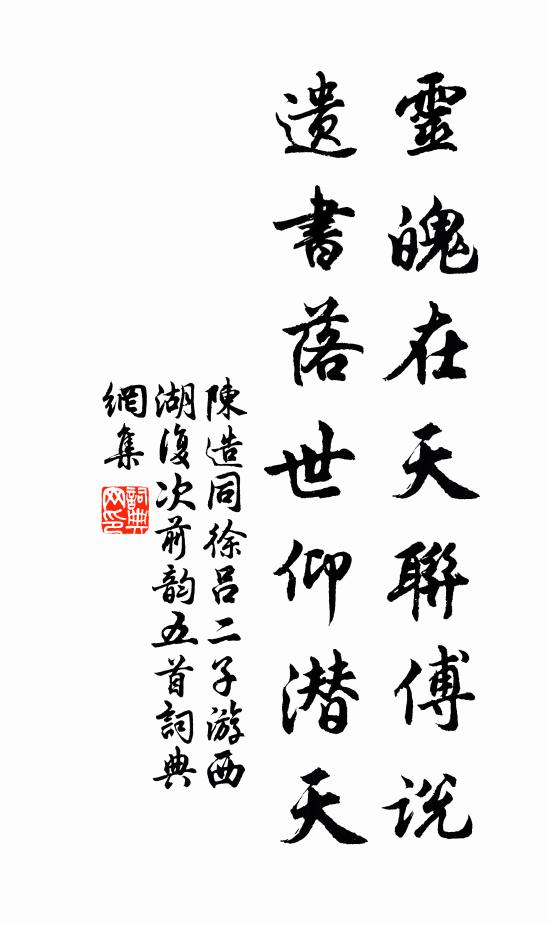 靈魄在天聯傅说
遗書落世仰潜天
陳造同徐吕二子游西
湖復次前韵五首詞典
網集
詞典网印